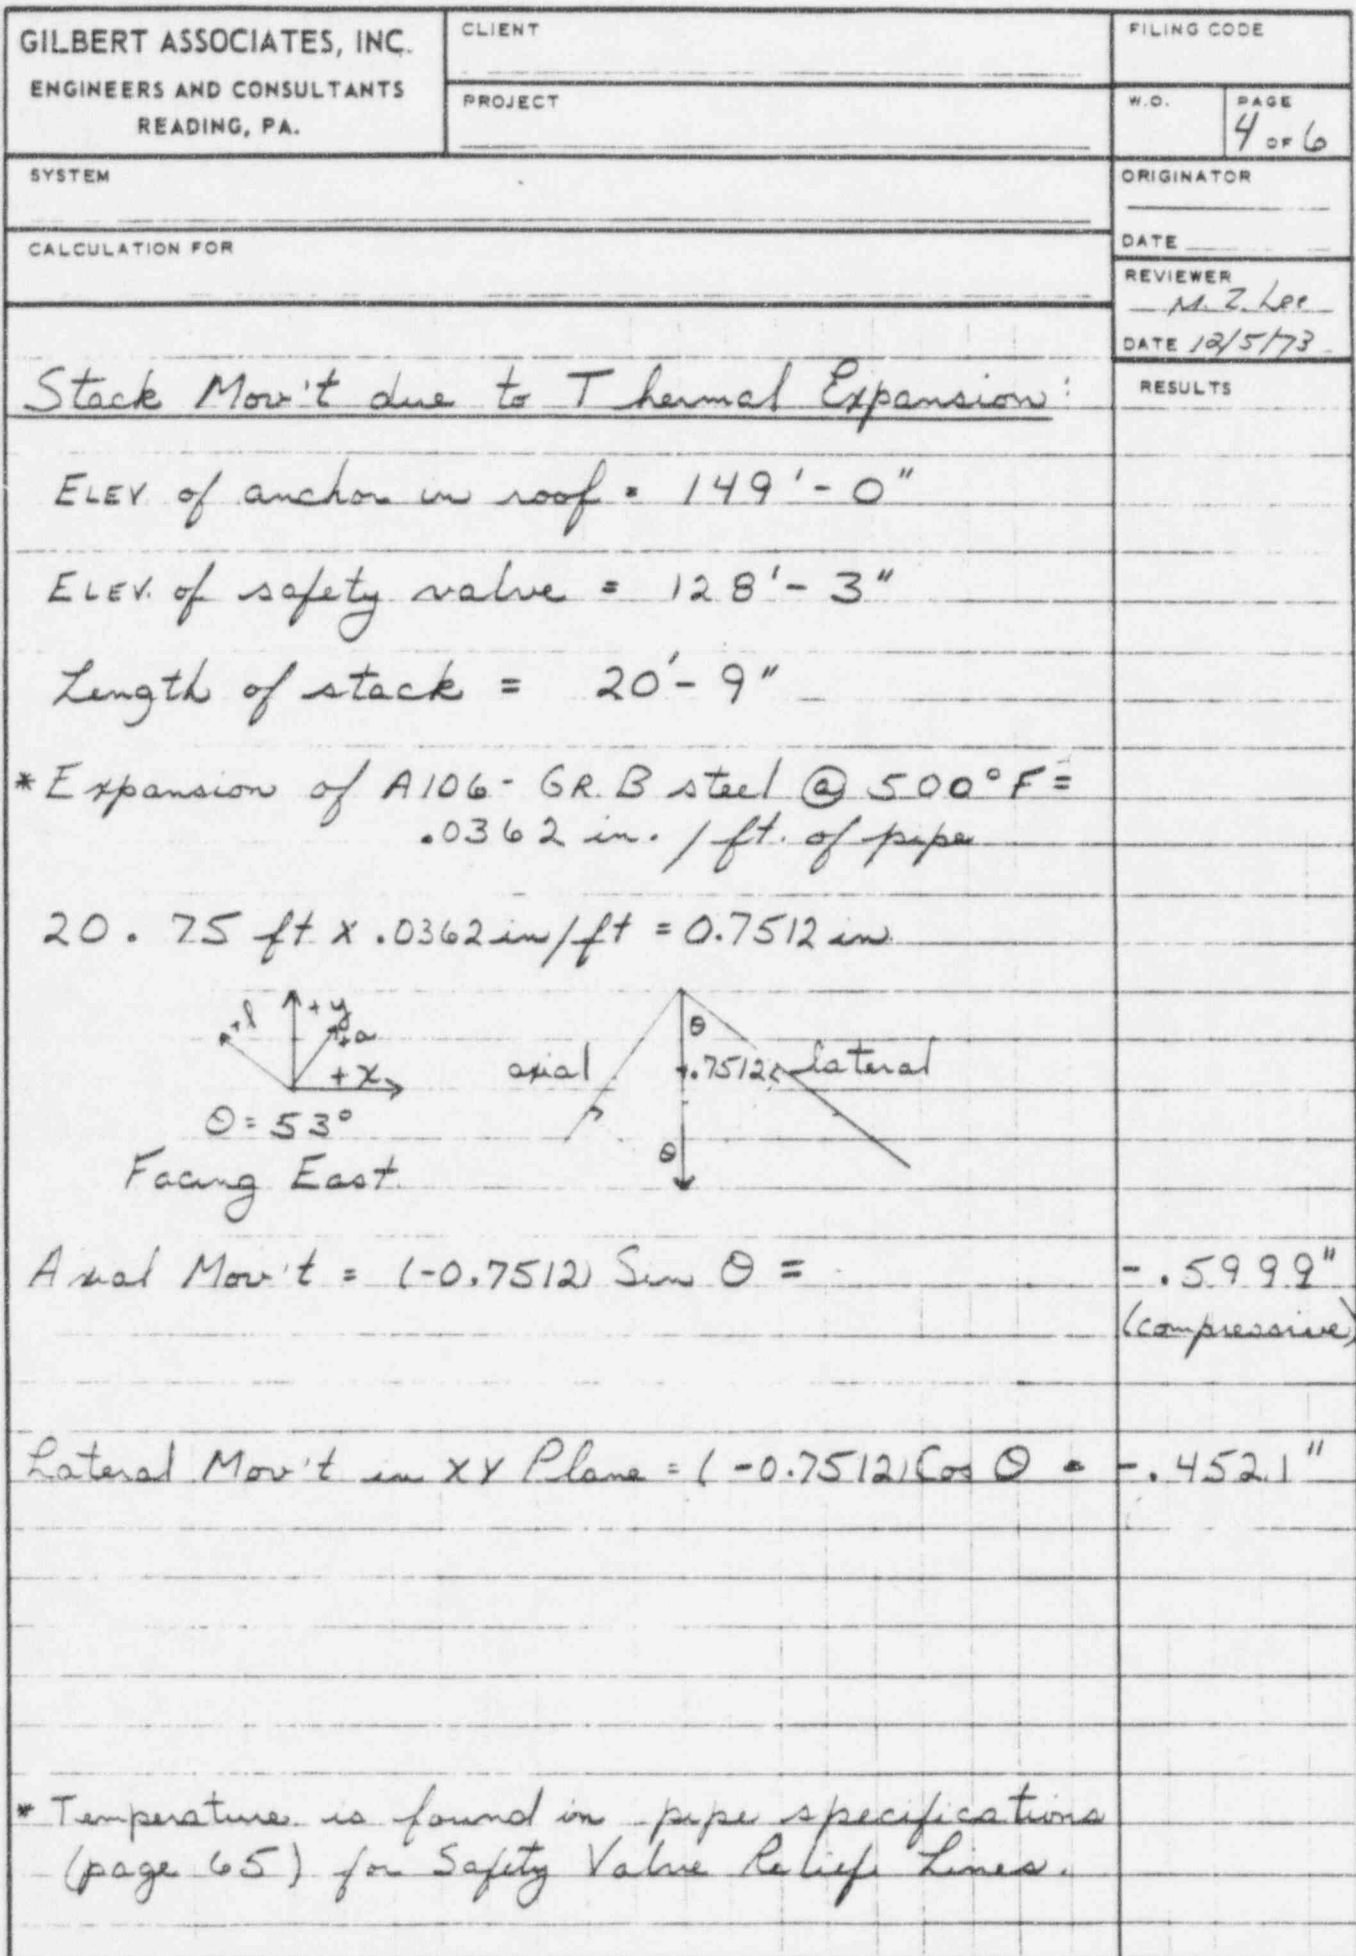 GILBERT ASSOCIATES, INC.
ENGINEERS AND CONSULTANTS
READING, PA.
CLIENT
PROJECT
FILING CODE
W.O.
PAGE
4 OF 6
SYSTEM
ORIGINATOR
DATE
CALCULATION FOR
REVIEWER
M. Z. Lee
DATE 12/5/73
RESULTS
Stack Mov't due to Thermal Expansion:
ELEV. of anchor in roof = 149'-0"
ELEV. of safety valve = 128'-3"
Length of stack = 20'-9"
* Expansion of A106-GR.B steel @ 500°F =
.0362 in. / ft. of pipe
20.75 ft x .0362 in/ft = 0.7512 in.
+l
+y
+a
+x
θ = 53°
Facing East.
axial
θ
.7512
lateral
θ
Axial Mov't = (-0.7512) Sin θ =
-.5999"
(compressive)
Lateral Mov't in XY Plane = (-0.7512) Cos θ =
-.4521"
* Temperature is found in pipe specifications
(page 65) for Safety Valve Relief Lines.